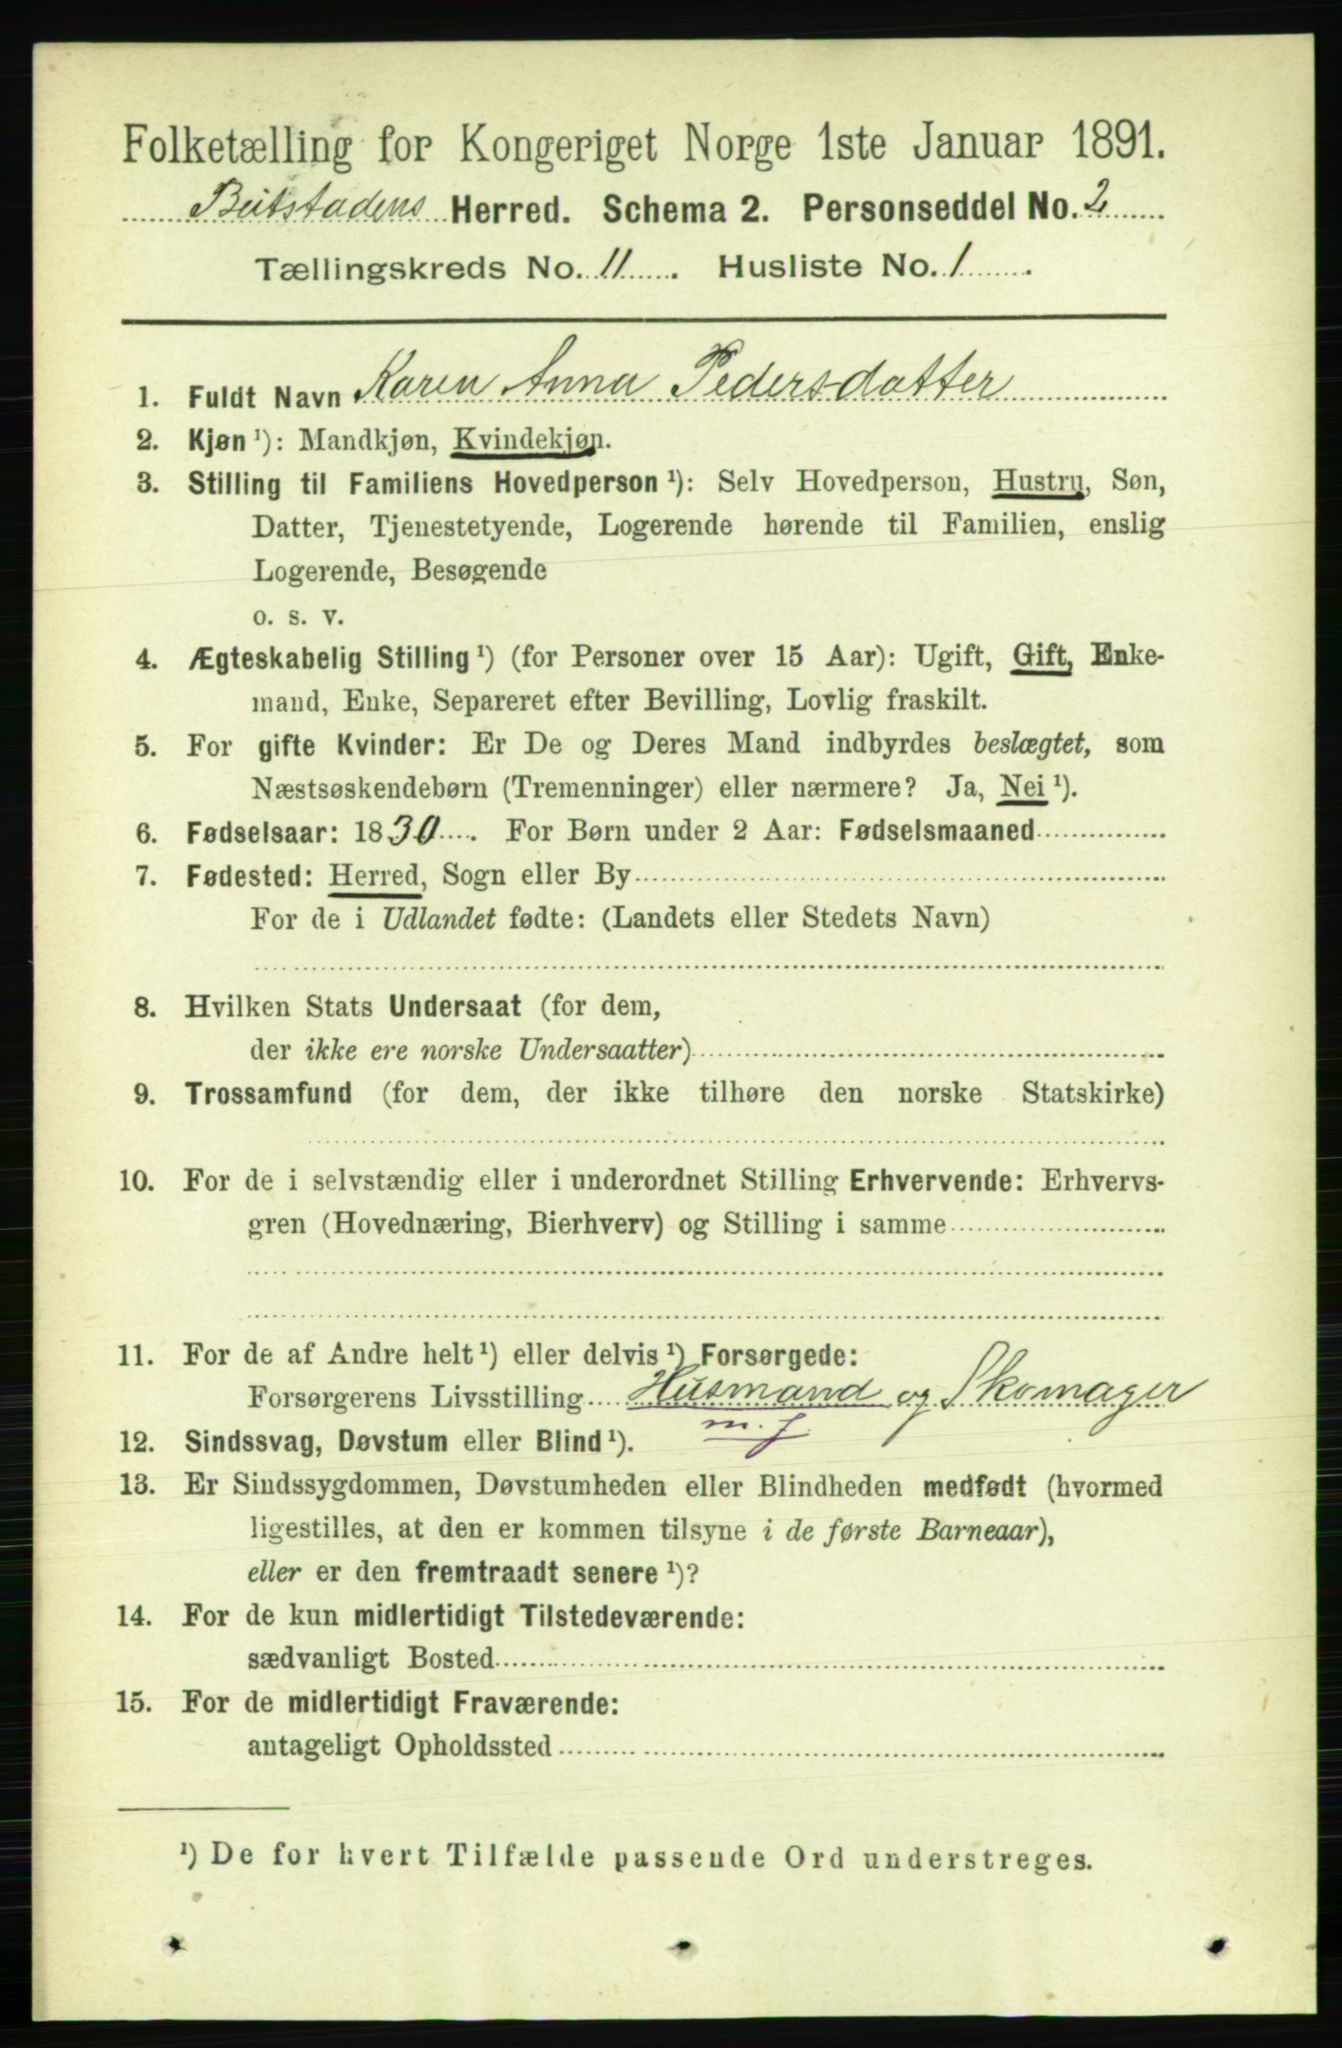 Folketælling for Kongeriget Norge 1ste Januar 1891.
Beitstadens Herred. Schema 2. Personseddel No. 2
Tællingskreds No. 11. Husliste No. 1.
1. Fuldt Navn Karen Anna Pedersdatter
2. Kjøn ¹): Mandkjøn, Kvindekjøn.
3. Stilling til Familiens Hovedperson ¹): Selv Hovedperson, Hustru, Søn,
Datter, Tjenestetyende, Logerende hørende til Familien, enslig
Logerende, Besøgende
o. s. v.
4. Ægteskabelig Stilling ¹) (for Personer over 15 Aar): Ugift, Gift, Enke-
mand, Enke, Separeret efter Bevilling, Lovlig fraskilt.
5. For gifte Kvinder: Er De og Deres Mand indbyrdes beslægtet, som
Næstsøskendebørn (Tremenninger) eller nærmere? Ja, Nei ¹).
6. Fødselsaar: 1830. For Børn under 2 Aar: Fødselsmaaned
7. Fødested: Herred, Sogn eller By
For de i Udlandet fødte: (Landets eller Stedets Navn)
8. Hvilken Stats Undersaat (for dem,
der ikke ere norske Undersaatter)
9. Trossamfund (for dem, der ikke tilhøre den norske Statskirke)
10. For de i selvstændig eller i underordnet Stilling Erhvervende: Erhvervs-
gren (Hovednæring, Bierhverv) og Stilling i samme
11. For de af Andre helt ¹) eller delvis ¹) Forsørgede:
Forsørgerens Livsstilling Husmand og Skomager
m. j.
12. Sindssvag, Døvstum eller Blind ¹).
13. Er Sindssygdommen, Døvstumheden eller Blindheden medfødt (hvormed
ligestilles, at den er kommen tilsyne i de første Barneaar),
eller er den fremtraadt senere ¹)?
14. For de kun midlertidigt Tilstedeværende:
sædvanligt Bosted
15. For de midlertidigt Fraværende:
antageligt Opholdssted
¹) De for hvert Tilfælde passende Ord understreges.